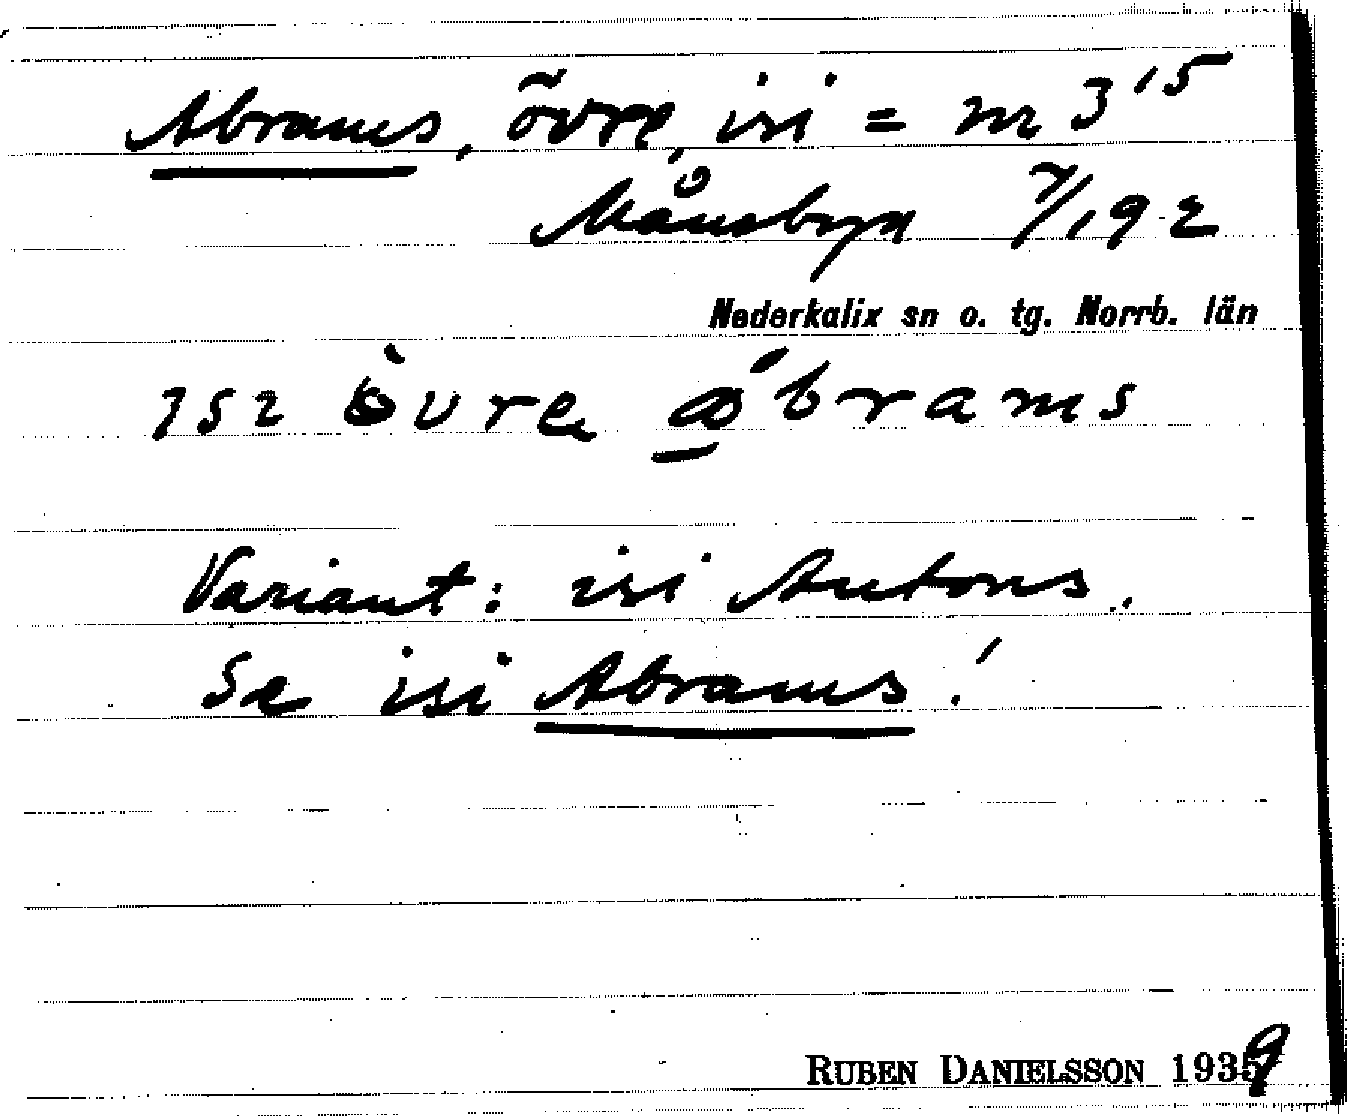 Abrams, övre, isi = nr 3¹⁵
Månsbyn 7/19 2
Nederkalix sn o. tg. Norrb. län
ɪsɪ òvre ábrams
Variant: isi Antons.
Se isi Abrams!
RUBEN DANIELSSON 1939